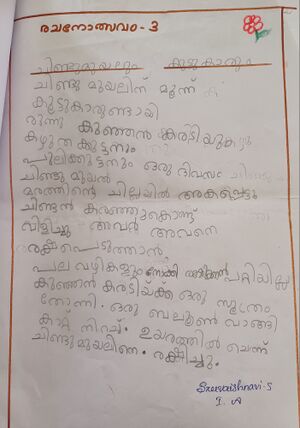 രചനോത്സവം - 3
ചിണ്ടുമുയലും കൂട്ടുകാരും
ചിണ്ടു മുയലിന് മൂന്ന്
കൂട്ടുകാരുണ്ടായി
രുന്നു കുഞ്ഞൻ കരടിയും
കഴുത കുട്ടനും
പുലിക്കുട്ടനും ഒരു ദിവസം
ചിണ്ടു മുയൽ
മരത്തിൻ്റെ ചില്ലയിൽ അകപ്പെട്ടു
ചിണ്ടൻ കരഞ്ഞുകൊണ്ട്
വിളിച്ചു അവർ അവനെ
രക്ഷപെടുത്താൻ.
പല വഴികളും നോക്കി പറ്റിയില്ല
കുഞ്ഞൻ കരടിയ്ക്ക് ഒരു സൂത്രം
തോന്നി. ഒരു ബലൂൺ വാങ്ങി
കാറ്റ് നിറച്ച്. ഉയരത്തിൽ ചെന്ന്
ചിണ്ടുമുയലിനെ. രക്ഷിച്ചു.
Sreevaishnavi-S
I. A